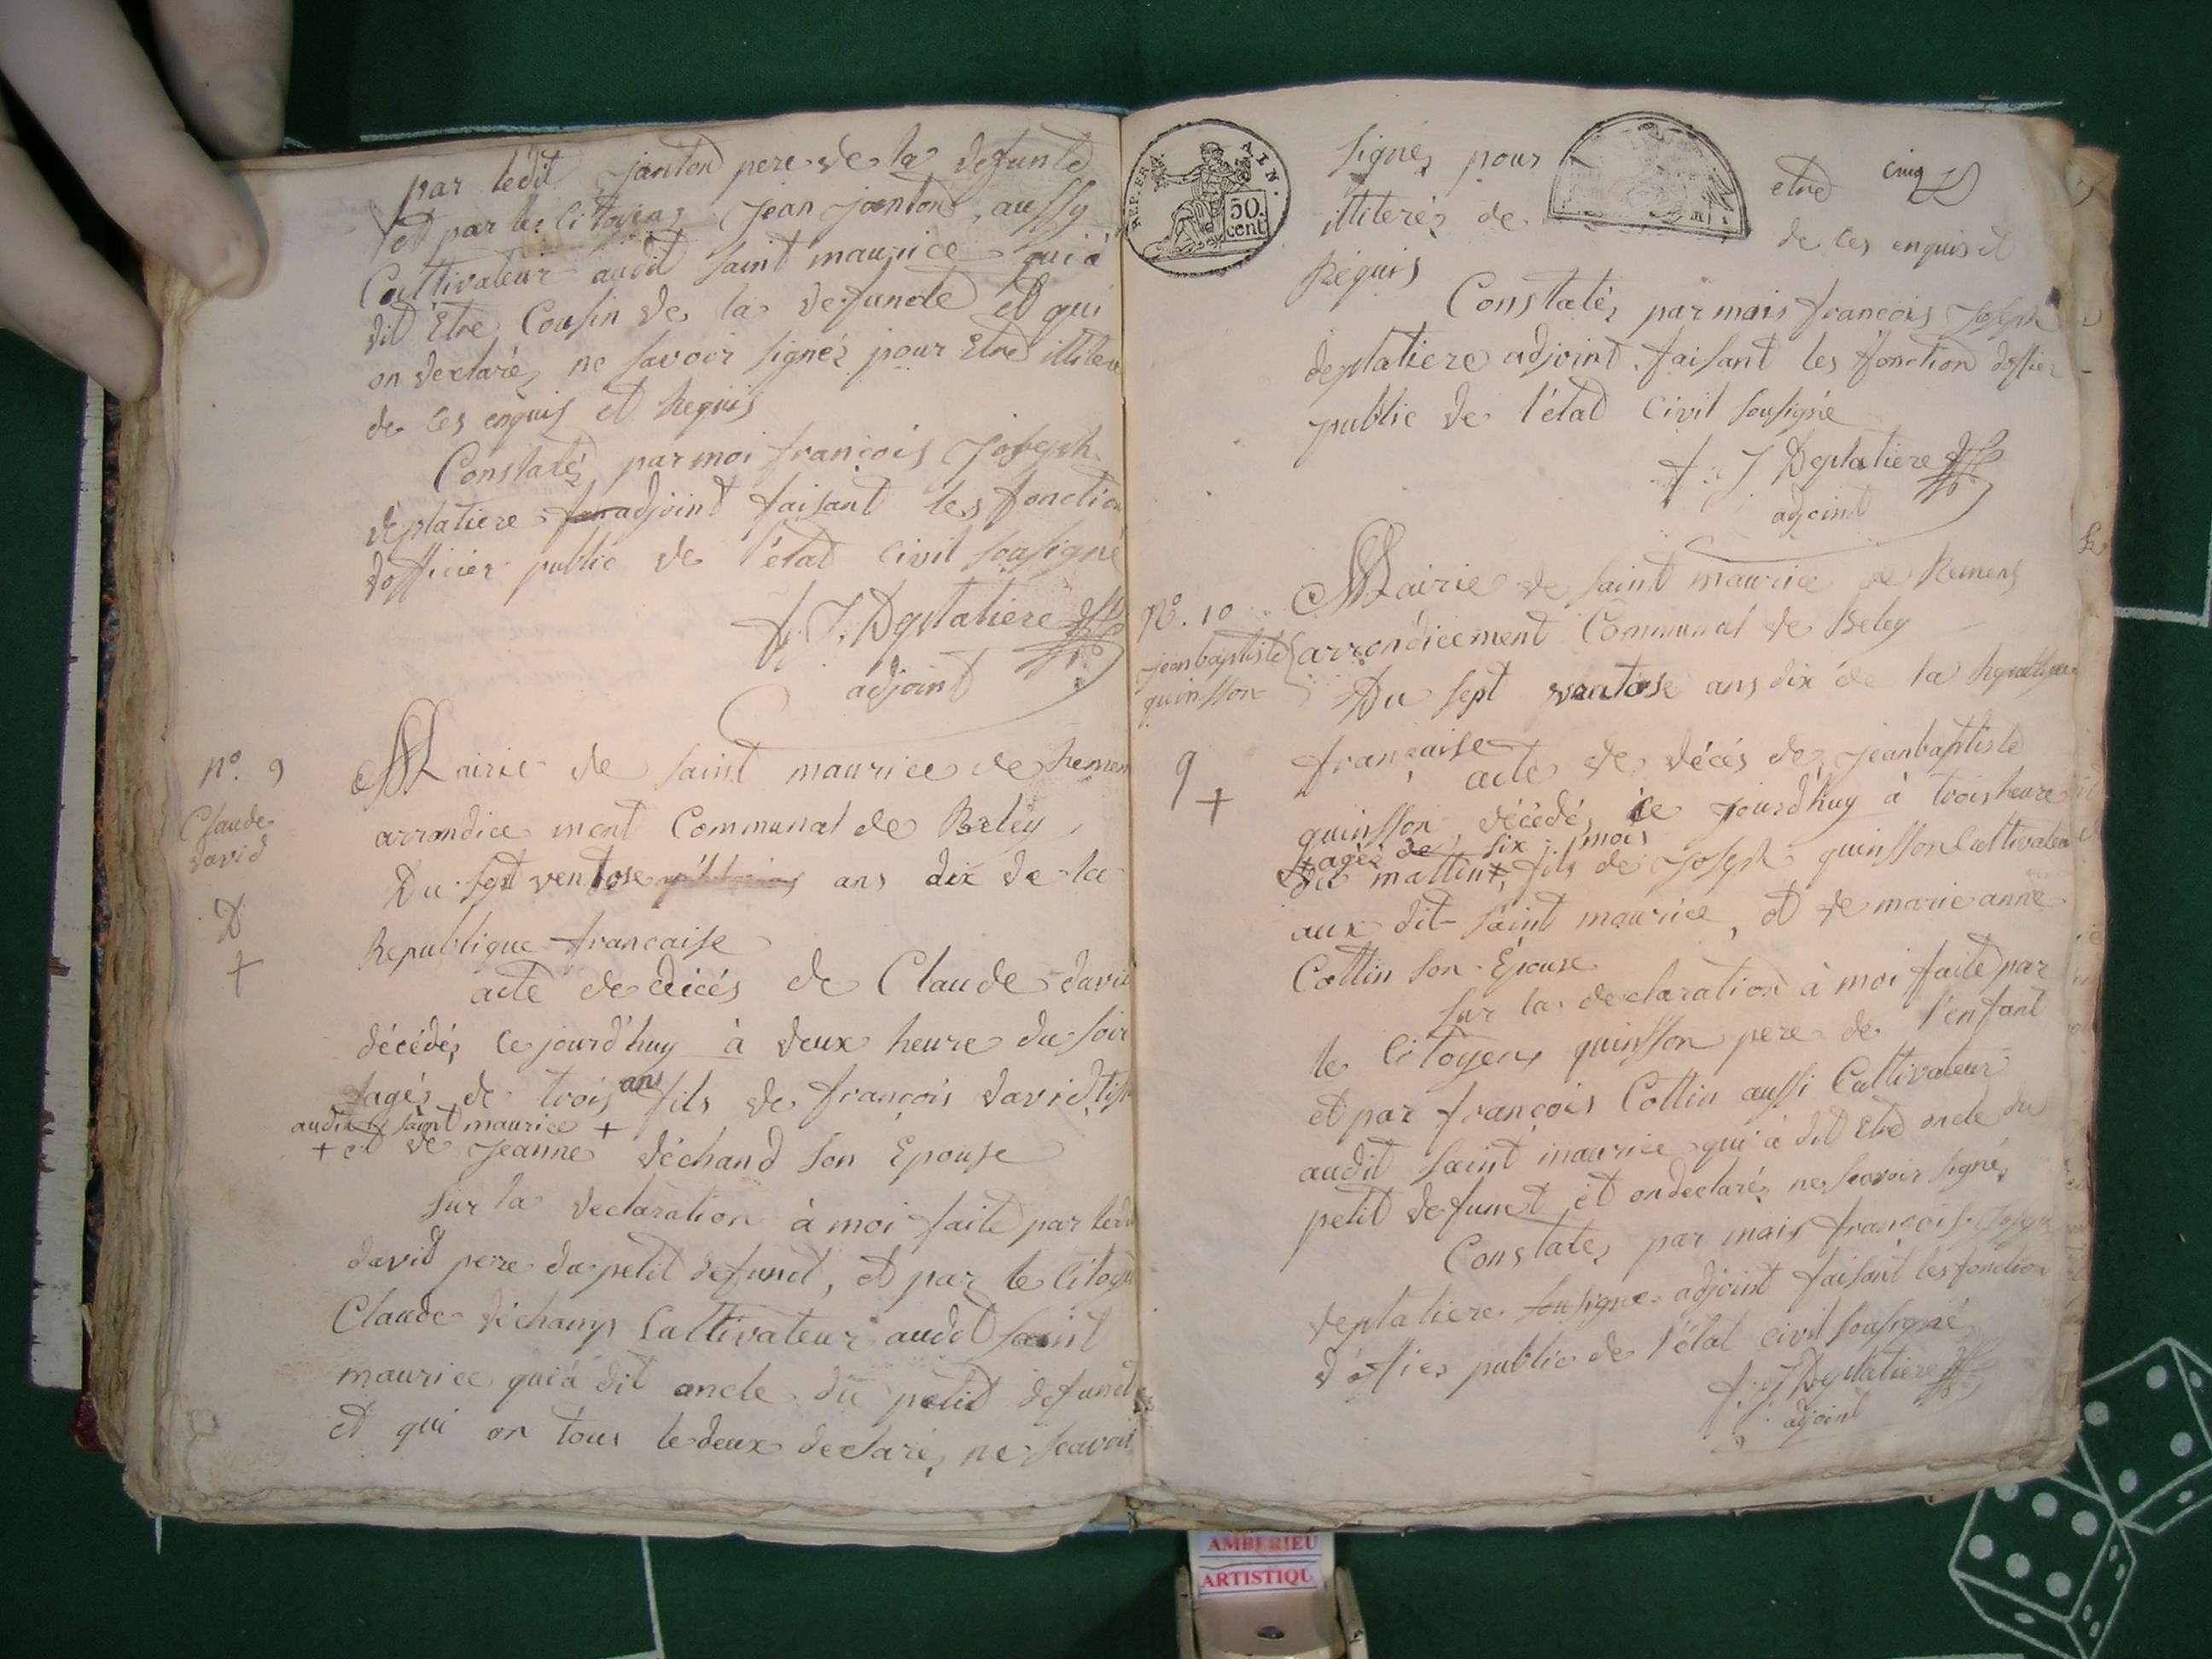 par ledit janton pere de la defunte
et par les Citoyens Jean janton, aussy
Cultivateur audit saint maurice qui à
dit Etre Cousin de la defuncte et qui
on declaré, ne savoir signé, pour Etre illitere
de ces enquis et Requis
Constaté, par moi françois Joseph
deplatiere adjoint faisant les fonction
dofficier public de l'état civil sousigné
f. J. Deplatiere
adjoint
n°. 9
Claude
david
Mairie de saint maurice de Remen
arrondice ment Communal de Beley
Du sept ventose ans dix de la
Republique francaise
acte de décés de Claude david
décédé, ce jourd'huy à deux heure du soir
agés de trois ans fils de françois david
audit saint maurice +
+ et de Jeanne déchand son Epouse
sur la declaration à moi faite par ledit
david pere du petit defunct, et par le Citoyen
Claude déchamp Cultivateur audit saint
maurice qui à dit oncle du petit defunct
et qui on tous le deux declaré, ne scavoir
REP. FRA. AIN.
50.
cent.
signé, pour etre cinq
illiterés de de ces enquis et
Réquis
Constaté, par mois françois Joseph
deplatiere adjoint faisant les fonction doffier
public de l'état civil sousigné
f. J Deplatiere
adjoint
N°. 10
jeanbaptiste
quinsson
Mairie de saint maurice de Remens
arrondicement Communal de Beley
Du sept vantose ans dix de la Republique
française
9
+
acte de décés de jeanbaptiste
quinsson, décédé, ce jourd'huy à trois heure
agés de six mois
du mattin, fils de Joseph quinsson Cultivateur
aux dit saint maurice, et de marie anne
Collin son Épouse
sur la declaration à moi faite par
le Citoyens quinsson pere de l'enfant
et par françois Collin aussi Cultivateur
audit saint maurice qui à dit Etre oncle du
petit defunct et on declaré, ne scavoir signé,
Constaté, par mois françois Joseph
deplatiere sousigne adjoint faisant les fonction
d'offier public de l'état civil sousigné
f. J Deplatiere
adjoint
AMBERIEU
ARTISTIQU